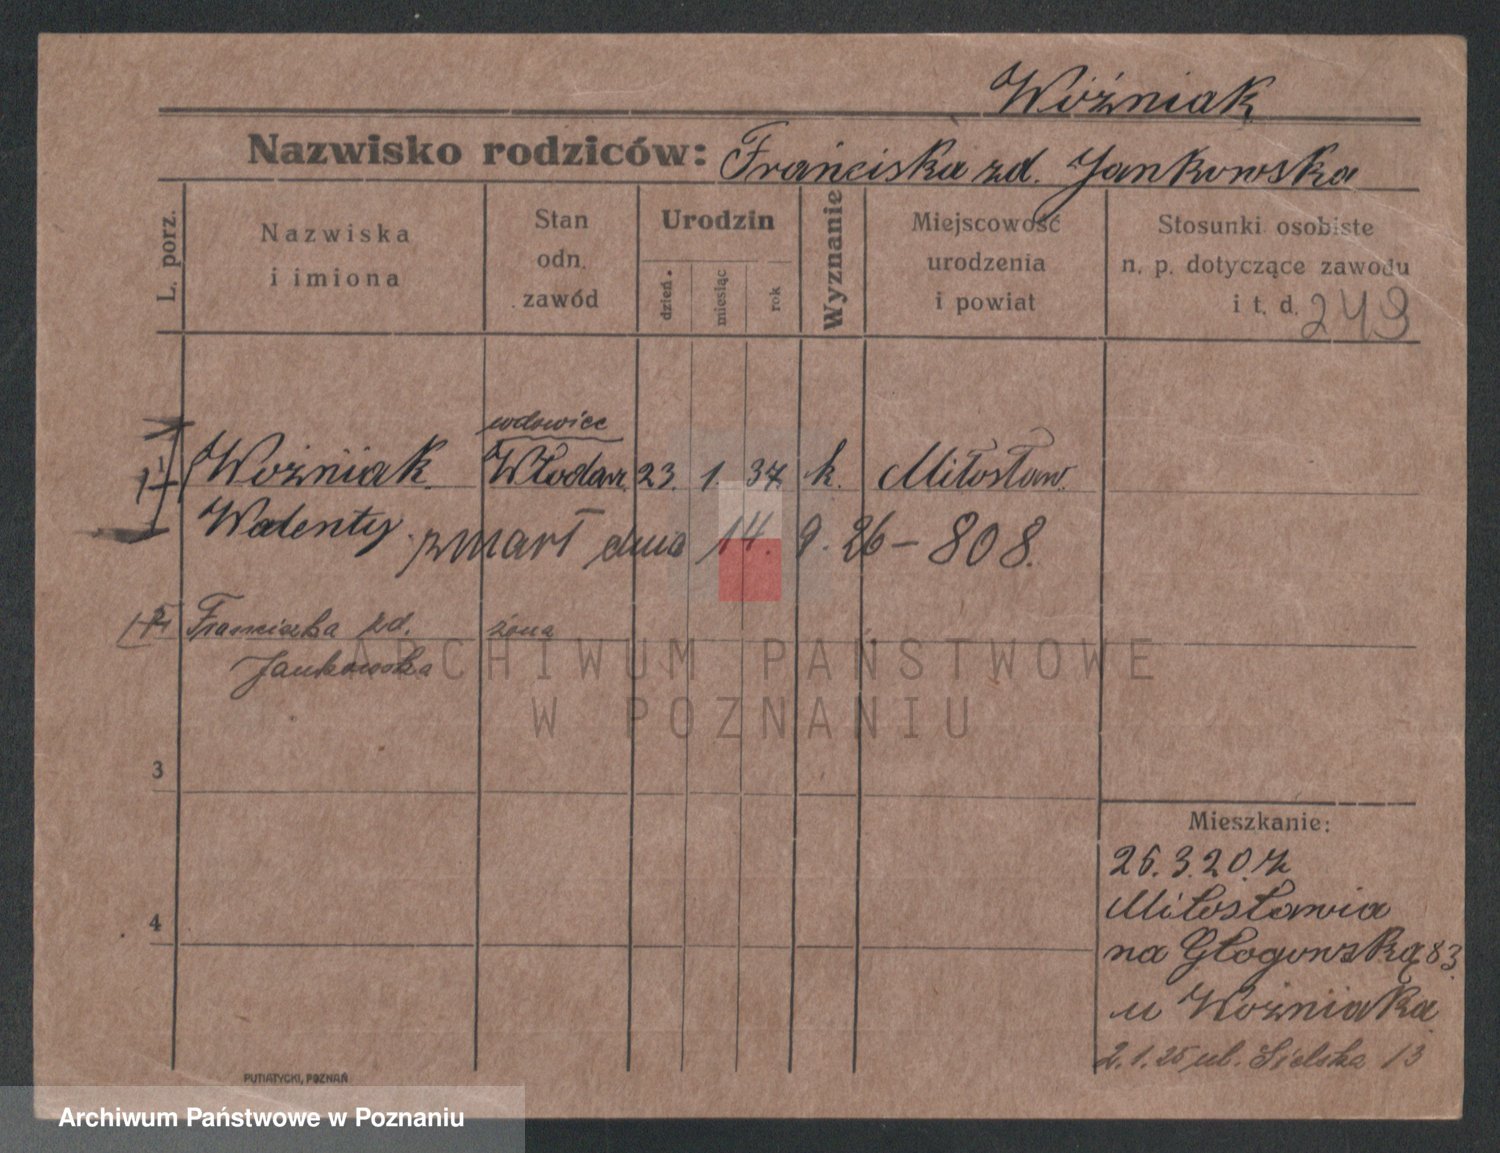 Woźniak
Nazwisko rodziców: Franciska zd. Jankowska
L. porz.
Nazwiska
i imiona
Stan
odn.
zawód
Urodzin
dzień.
miesiąc
rok
Wyznanie
Miejscowość
urodzenia
i powiat
Stosunki osobiste
n. p. dotyczące zawodu
i t. d. 249
wdowiec
1 Woźniak Włodarz 23. 1. 37. k. Miłosław.
Walenty. zmarł dnia 14. 9. 26 – 808.
2 Franciszka zd. żona
Jankowska
3
4
Mieszkanie:
26. 3. 20. z
Miłosławia
na Głogowską 83.
u Woźniaka
2. 1. 25 ul. Sielska 13
PUTIATYCKI, POZNAŃ
ARCHIWUM PAŃSTWOWE
W POZNANIU
Archiwum Państwowe w Poznaniu